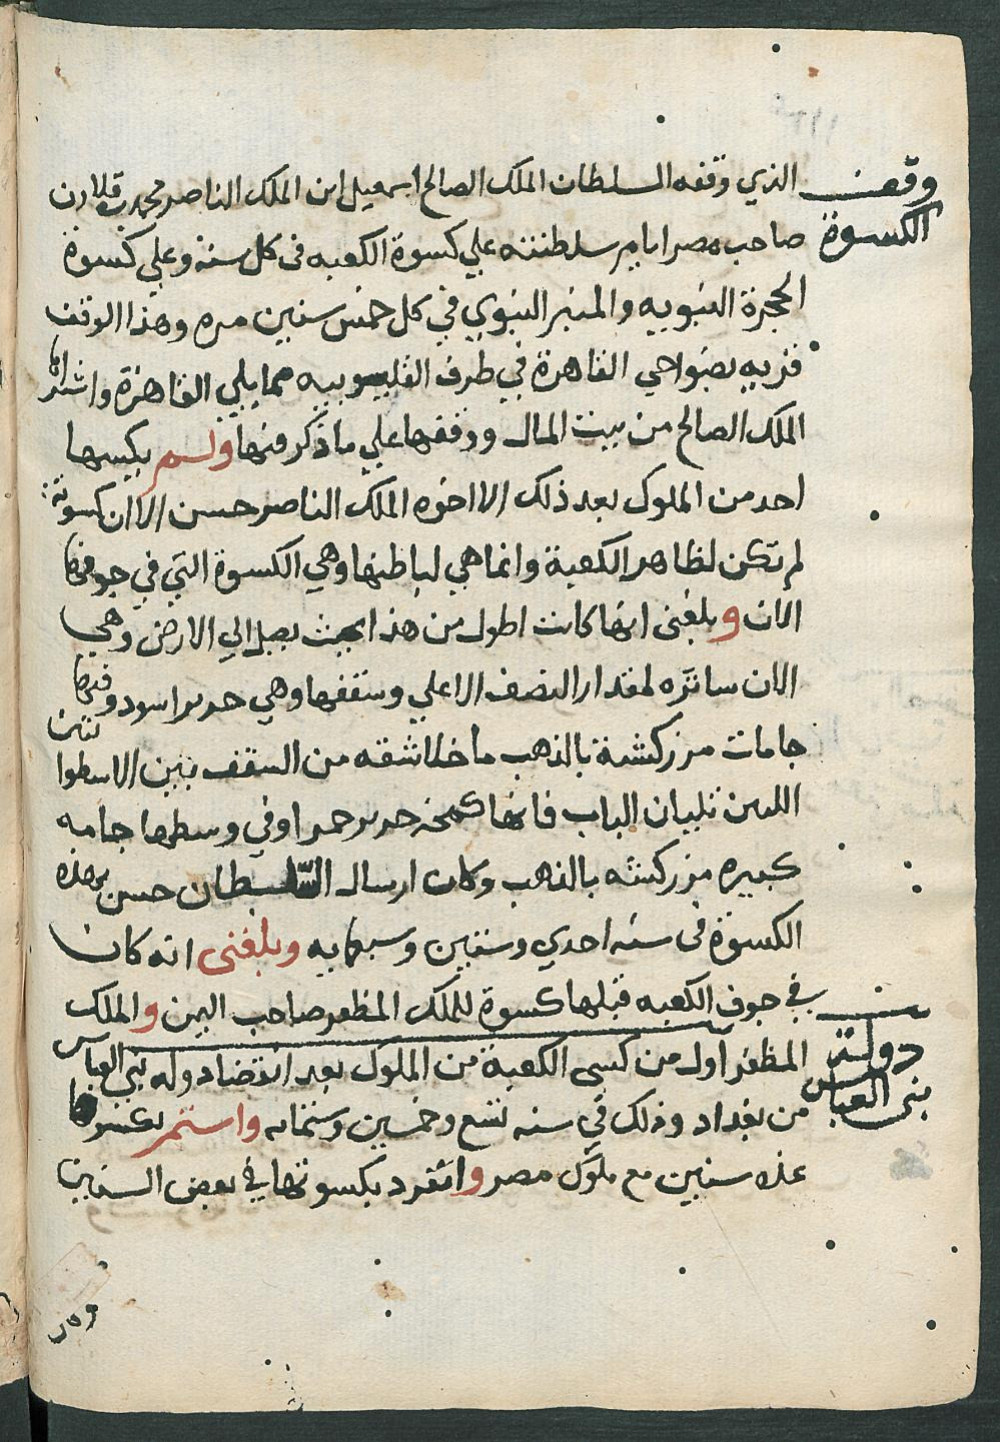 وقف
الكسوة
الذي وقفه السلطان الملك الصالح اسمعيل ابن الملك الناصر محمد بن قلاون
صاحب مصر ايام سلطنته علي كسوة الكعبه فى كل سنه وعلي كسوة
الحجرة النبويه والمنبر النبوي في كل خمس سنين مره وهذا الوقف
قريه بضواحي القاهرة في طرف القليوبيه مما يلي القاهرة واشتراها
الملك الصالح من بيت المال ووقفها علي ما ذكر فنها ولم يكسها
احد من الملوك بعد ذلك الا اخوه الملك الناصر حسن الا ان كسوته
لم تكن لظاهر الكعبة وانما هي لباطنها وهي الكسوة التي في جوفها
الان وبلغنى انها كانت اطول من هذا بحيث يصل الي الارض وهي
الان ساتره لمقدار النصف الاعلي وسقفها وهي حرير اسود وفيها
جامات مزركشة بالذهب ما خلا شقه من السقف بين الاسطوا نتين
اللتين تليان الباب فانها كمخه حرير حمراوفي وسطها جامه
كبيره مزركشه بالذهب وكان ارسال السلطان حسن بهذه
الكسوة فى سنه احدي وستين وسبعمايه وبلغنى انه كان
في جوف الكعبه قبلها كسوة للملك المظفر صاحب اليمن والملك
المظفر اول من كسى الكعبة من الملوك بعد انقضاء دوله بني العباس
دولة
بنى العباس
من بغداد وذلك في سنه تسع وخمسين وستمايه واستمر يكسوها
عده سنين مع ملوك مصر وانفرد بكسوتها في بعض السنين